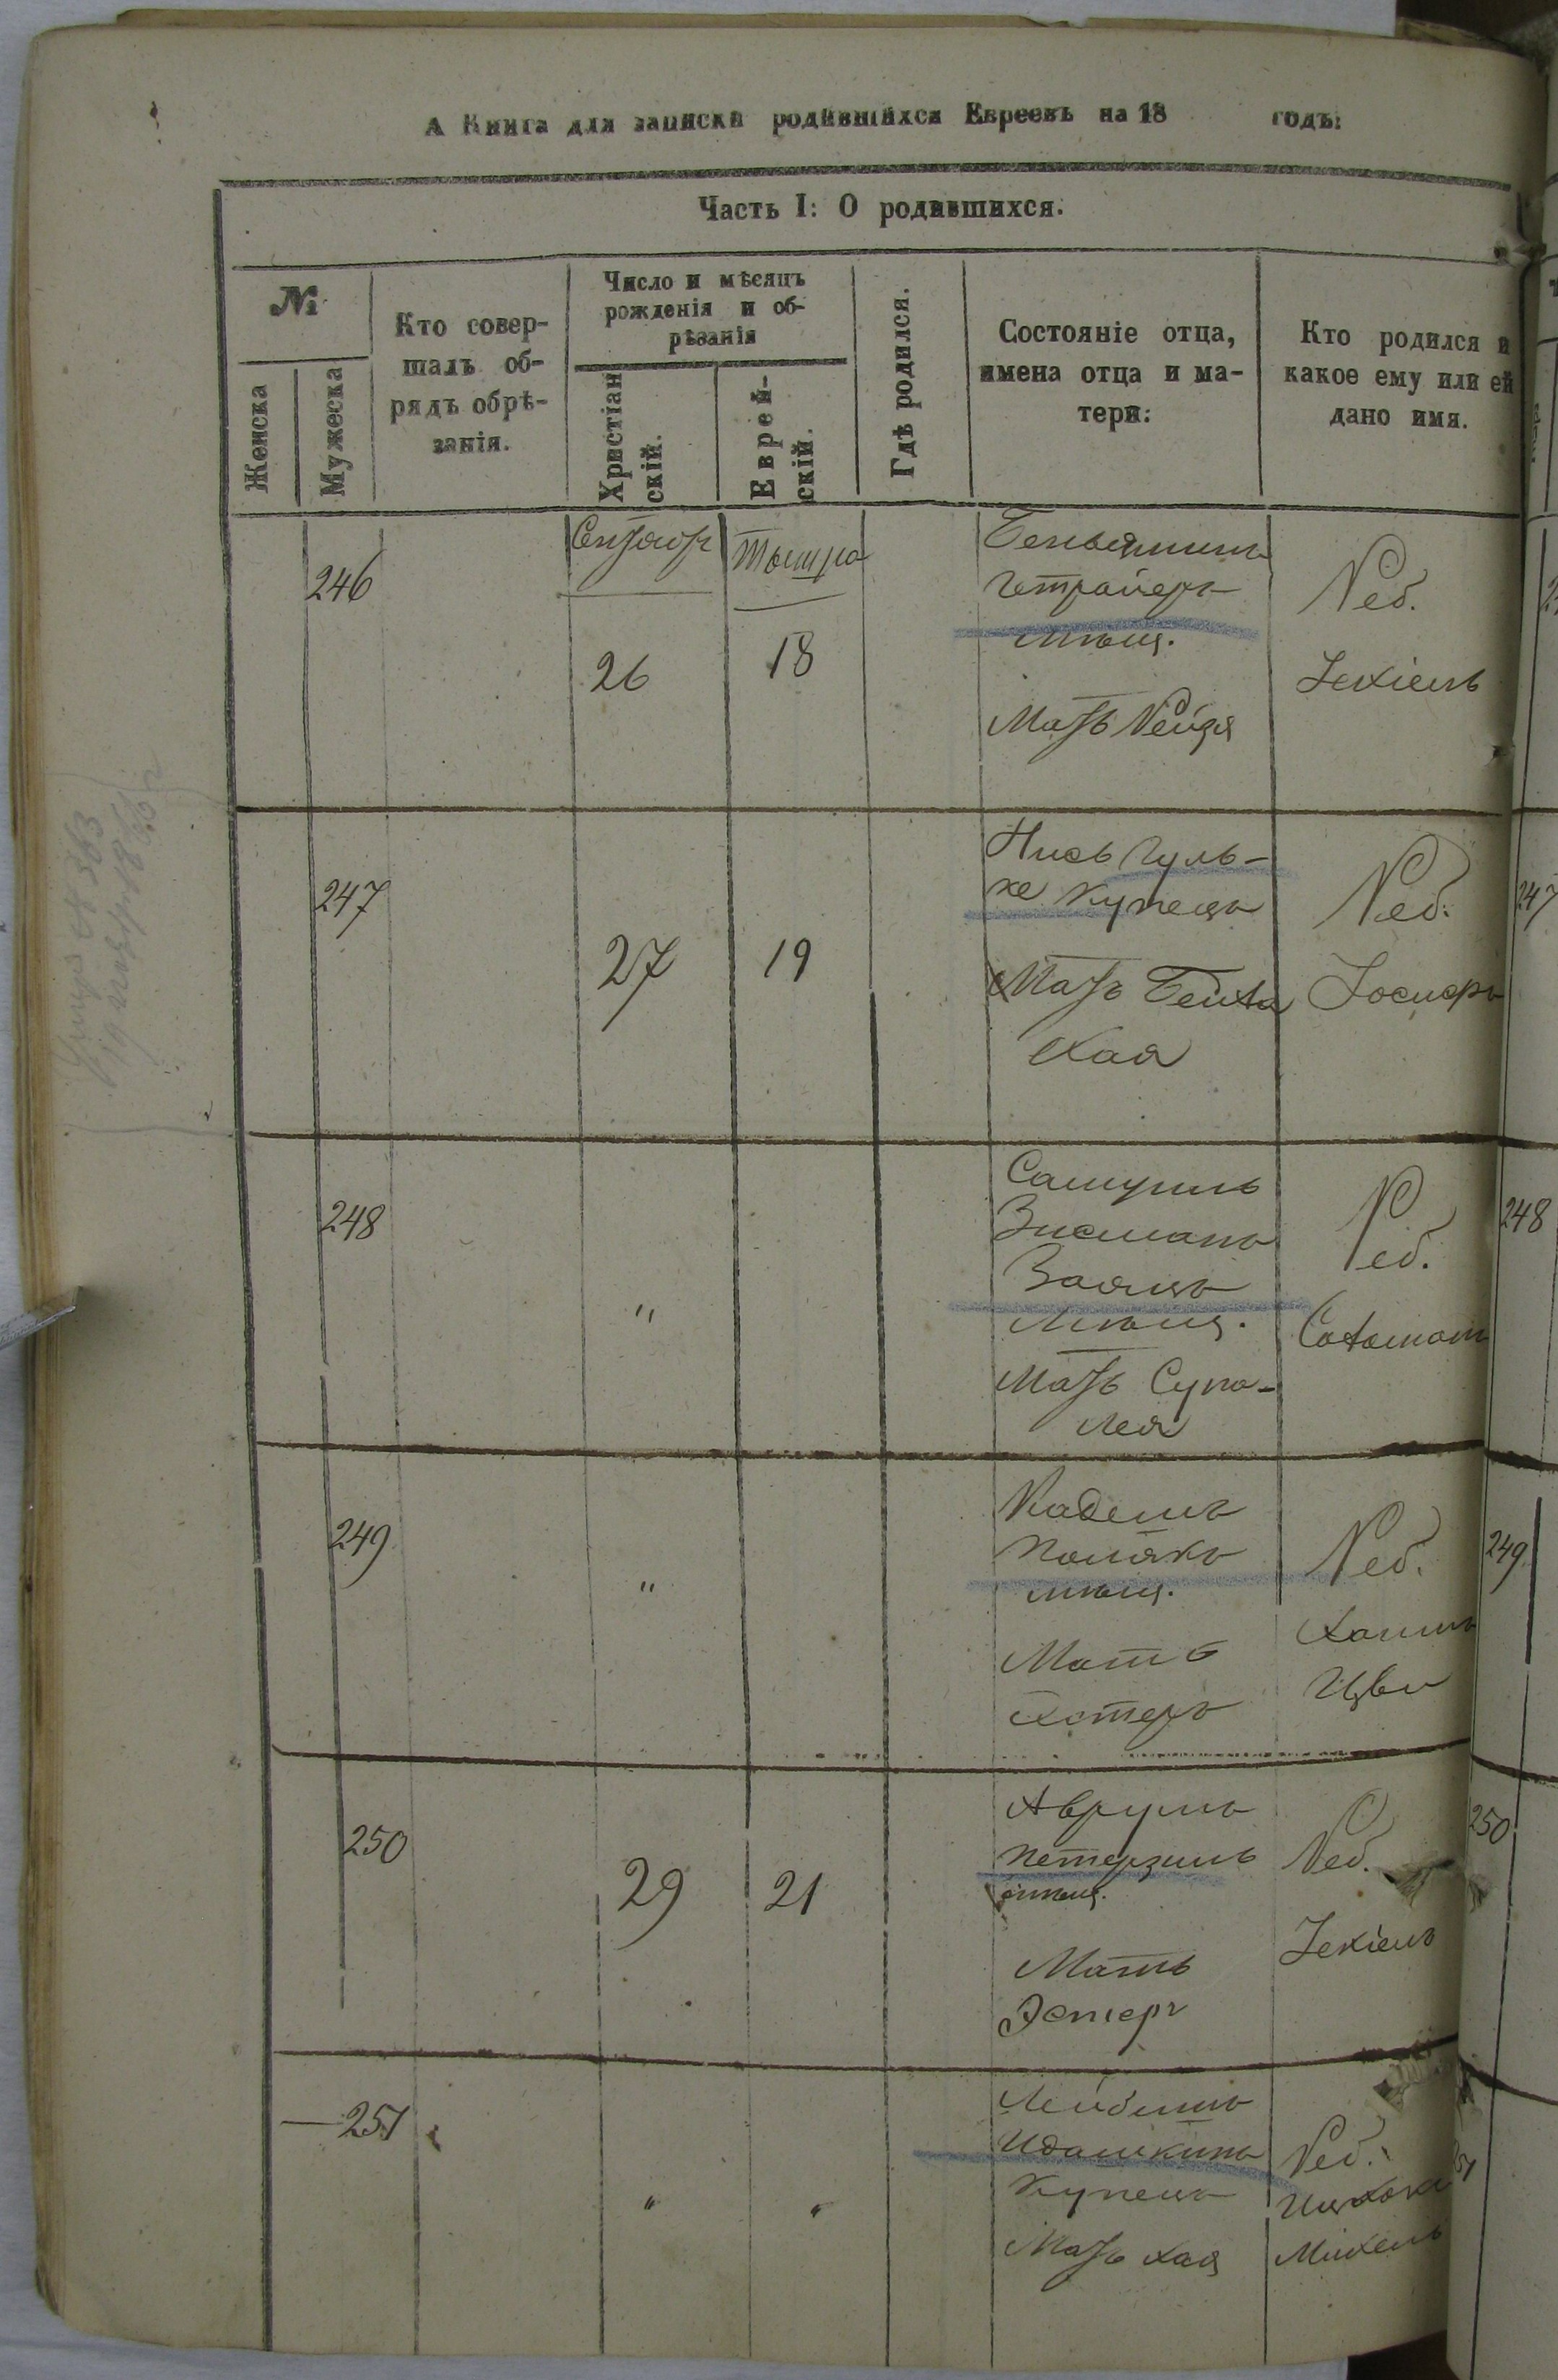 А Книга для записки родившихся Евреевъ на 18 годъ:
Часть I: О родившихся.
№
Женска
Мужеска
Кто совер-
шалъ об-
рядъ обрѣ-
занія.
Число и мѣсяцъ
рожденія и об-
рѣзанія
Христіан
скій.
Еврей-
скій.
Гдѣ родился.
Состояніе отца,
имена отца и ма-
тери:
Кто родился и
какое ему или ей
дано имя.
246
26
18
Беньяминъ
мѣщ.
Мать Рейзя
Реб.
Іехіель
247
27
19
Купецъ
Мать Бейла
Хая
Реб.
Іосифъ
247
248
"
Самуилъ
Зисманъ
Заяцъ
мѣщ.
Мать Сума-
Лея
Реб.
248
249
"
Кадишъ
Полякъ
мѣщ.
Мать
Эстеръ
Реб.
Хаимъ
Цви
249
250
29
21
Аврумъ
Петерзиль
мѣщ.
Мать
Эстеръ
Реб.
Іехіель
250
251
"
"
Лейбишъ
Идашкинъ
Купецъ
Мать Хая
Реб.
Ицхокъ
Михель